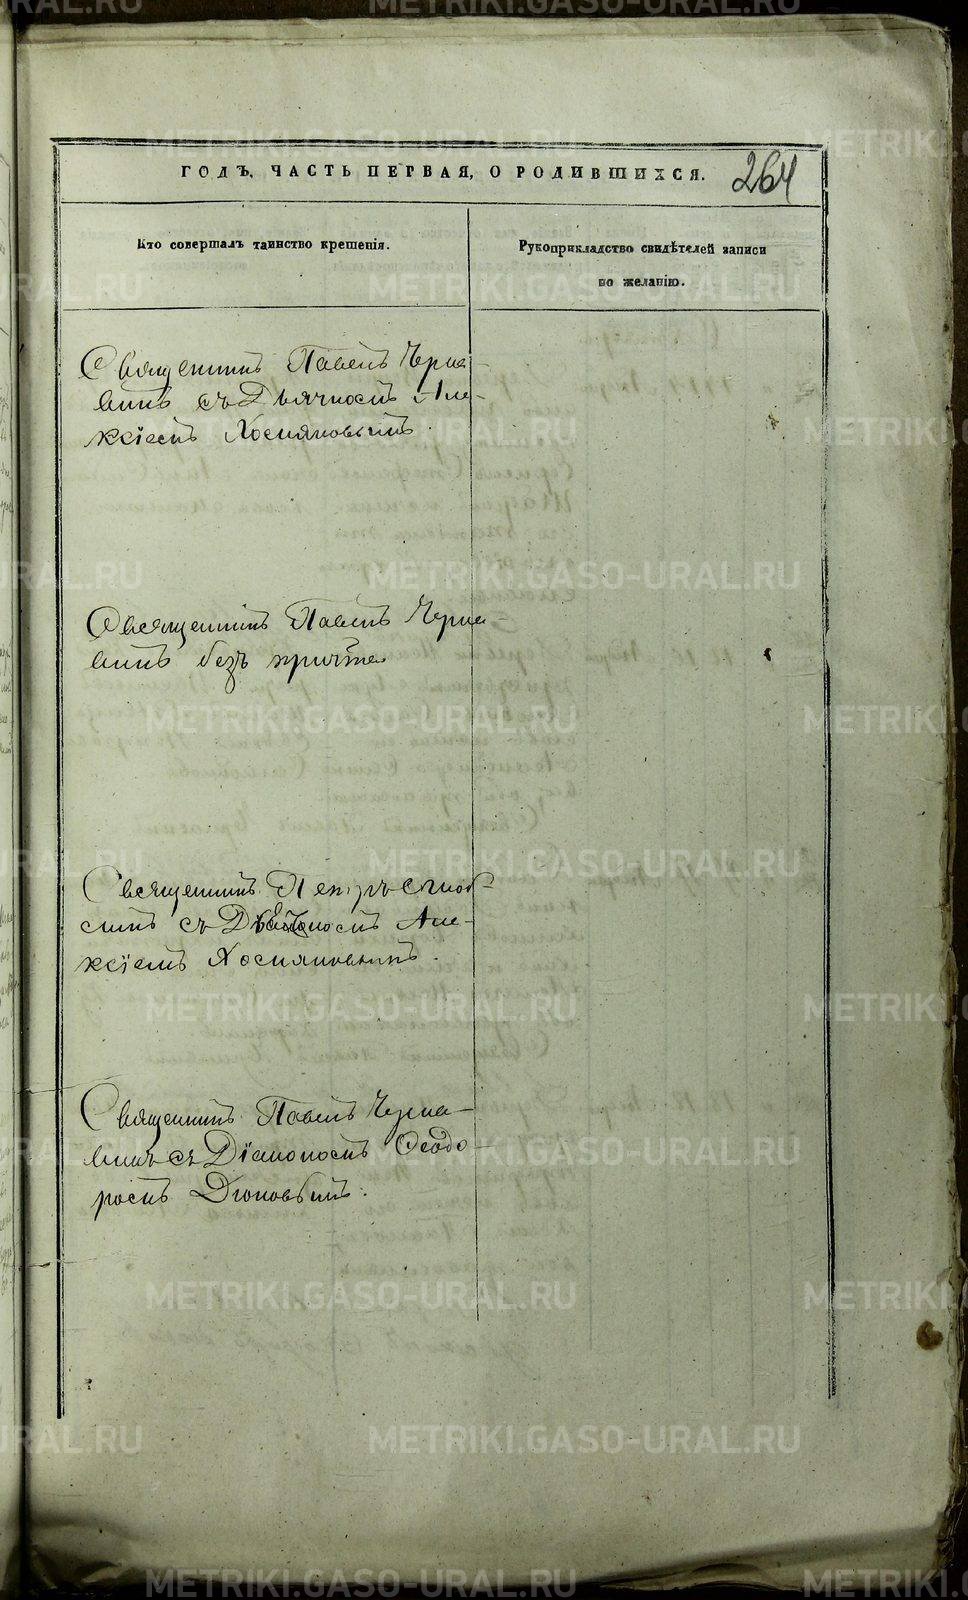 ГОДЪ, ЧАСТЬ ПЕРВАЯ, О РОДИВШИХСЯ.
264
Кто совершалъ таинство крещенія.
Рукоприкладство свидѣтелей записи
по желанію.
Священникъ Павелъ Черня-
винъ съ Дьячкомъ Але-
ксіемъ Хосняковымъ.
Священникъ Павелъ Черня-
винъ безъ причта
Священникъ Петръ
съ Але-
ксіемъ Хосняковымъ.
Священникъ Павелъ Черня-
винъ съ Діакономъ Ѳеодо-
ромъ
METRIKI.GASO-URAL.RU